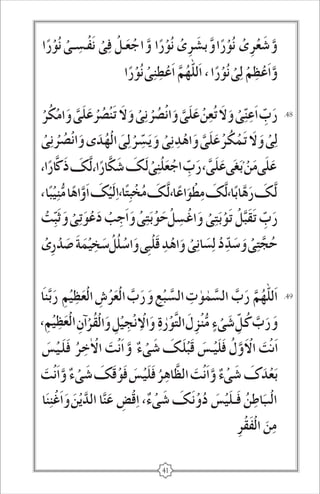 وَّ شَعْرِىْ نُوْرًا وَّ بَشَرِىْ نُوْرًا وَّ اجْعَلْ فِىْ نَفْسِىْ نُوْرًا
وَّاَعْظِمْ لِىْ نُوْرًا ، اَللّٰهُمَّ اَعْطِنِىْ نُوْرًا
48. رَبِّ اَعِنِّىْ وَلَا تُعِنْ عَلَىَّ وَانْصُرْنِىْ وَلَا تَنْصُرْ عَلَىَّ وَامْكُرْ
لِىْ وَلَا تَمْكُرْ عَلَىَّ وَاهْدِنِىْ وَيَسِّرْ لِىَ الْهُدَى وَانْصُرْنِىْ
عَلَى مَنْ بَغَى عَلَىَّ، رَبِّ اجْعَلْنِىْ لَكَ شَكَّارًا، لَكَ ذَكَّارًا،
لَّكَ رَهَّابًا، لَّكَ مِطْوَاعًا، لَّكَ مُخْبِتًا، اِلَيْكَ اَوَّاهًا مُّنِيْبًا،
رَبِّ تَقَبَّلْ تَوْبَتِىْ وَاغْسِلْ حَوْبَتِىْ وَاَجِبْ دَعْوَتِىْ وَثَبِّتْ
حُجَّتِىْ وَسَدِّدْ لِسَانِىْ وَاهْدِ قَلْبِىْ وَاسْلُلْ سَخِيْمَةَ صَدْرِىْ
49. اَللّٰهُمَّ رَبَّ السَّمٰوٰتِ السَّبْعِ وَ رَبَّ الْعَرْشِ الْعَظِيْمِ رَبَّنَا
وَ رَبَّ كُلِّ شَىْءٍ مُّنْزِلَ التَّوْرٰةِ وَالْاِنْجِيْلِ وَالْقُرْآنِ الْعَظِيْمِ،
اَنْتَ الْاَوَّلُ فَلَيْسَ قَبْلَكَ شَىْءٌ وَّ اَنْتَ الْاٰخِرُ فَلَيْسَ
بَعْدَكَ شَىْءٌ وَّاَنْتَ الظَّاهِرُ فَلَيْسَ فَوْقَكَ شَىْءٌ وَّ اَنْتَ
الْبَاطِنُ فَلَيْسَ دُوْنَكَ شَىْءٌ، اِقْضِ عَنَّا الدَّيْنَ وَاَغْنِنَا
مِنَ الْفَقْرِ
41